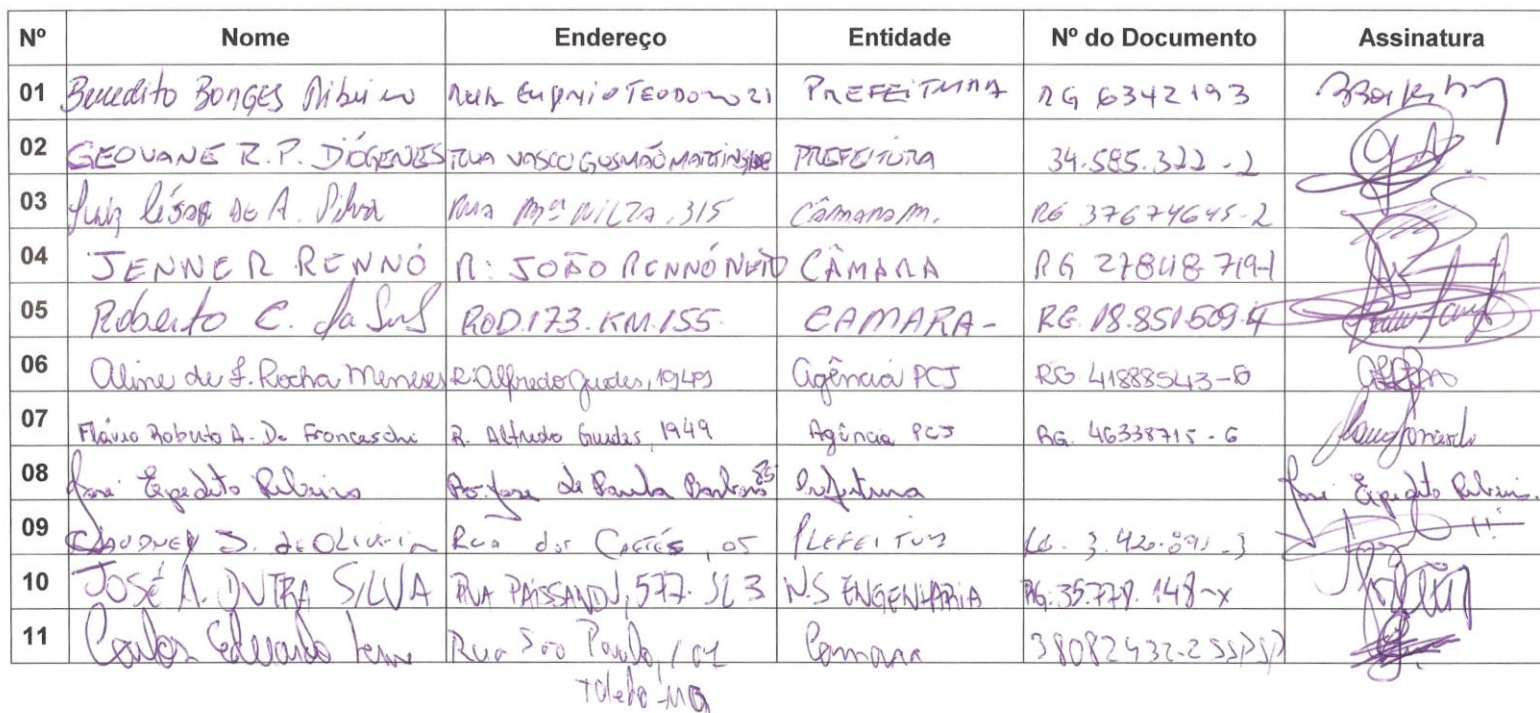 Nº Nome Endereço Entidade Nº do Documento Assinatura
01 Benedito BORGES Ribeiro RUA EUGNIO TEODORO 21 PREFEITURA RG 6342193
02 GEOVANE R. P. DIÓGENES RUA VASCO GUSMÃO MARTINS PREFEITURA 34.585.322-2
03 Luiz César DE A. Silva RUA Mª NILZA, 315 CÂMARA M. RG 37674645-2
04 JENNER RENNÓ R: JOÃO RENNÓ NETO CÂMARA RG 27848719-1
05 Roberto C. da ROD.173. KM.155. CAMARA- RG. 18.851.509-4
06 Aline de F. Rocha Meneses R. Alfredo Guedes, 1949 Agência PCJ RG 41888543-
07 Flávio Roberto A. De Franceschi R. Alfredo Guedes, 1949 Agência PCJ RG. 46338715-6
08 José Expedito Ribeiro José de Paula 85 Prefeitura José Expedito Ribeiro.
09 D. de OLIVEIRA Rua dos , 05 PREFEITURA
10 JOSÉ A. DUTRA SILVA RUA PAISSANDU, 577. SL 3 N.S ENGENHARIA RG. 35.779.148-x
11 Carlos Eduardo Rua São Paulo, 101 Camara 38082432-2 SSP/SP
Toledo-MG